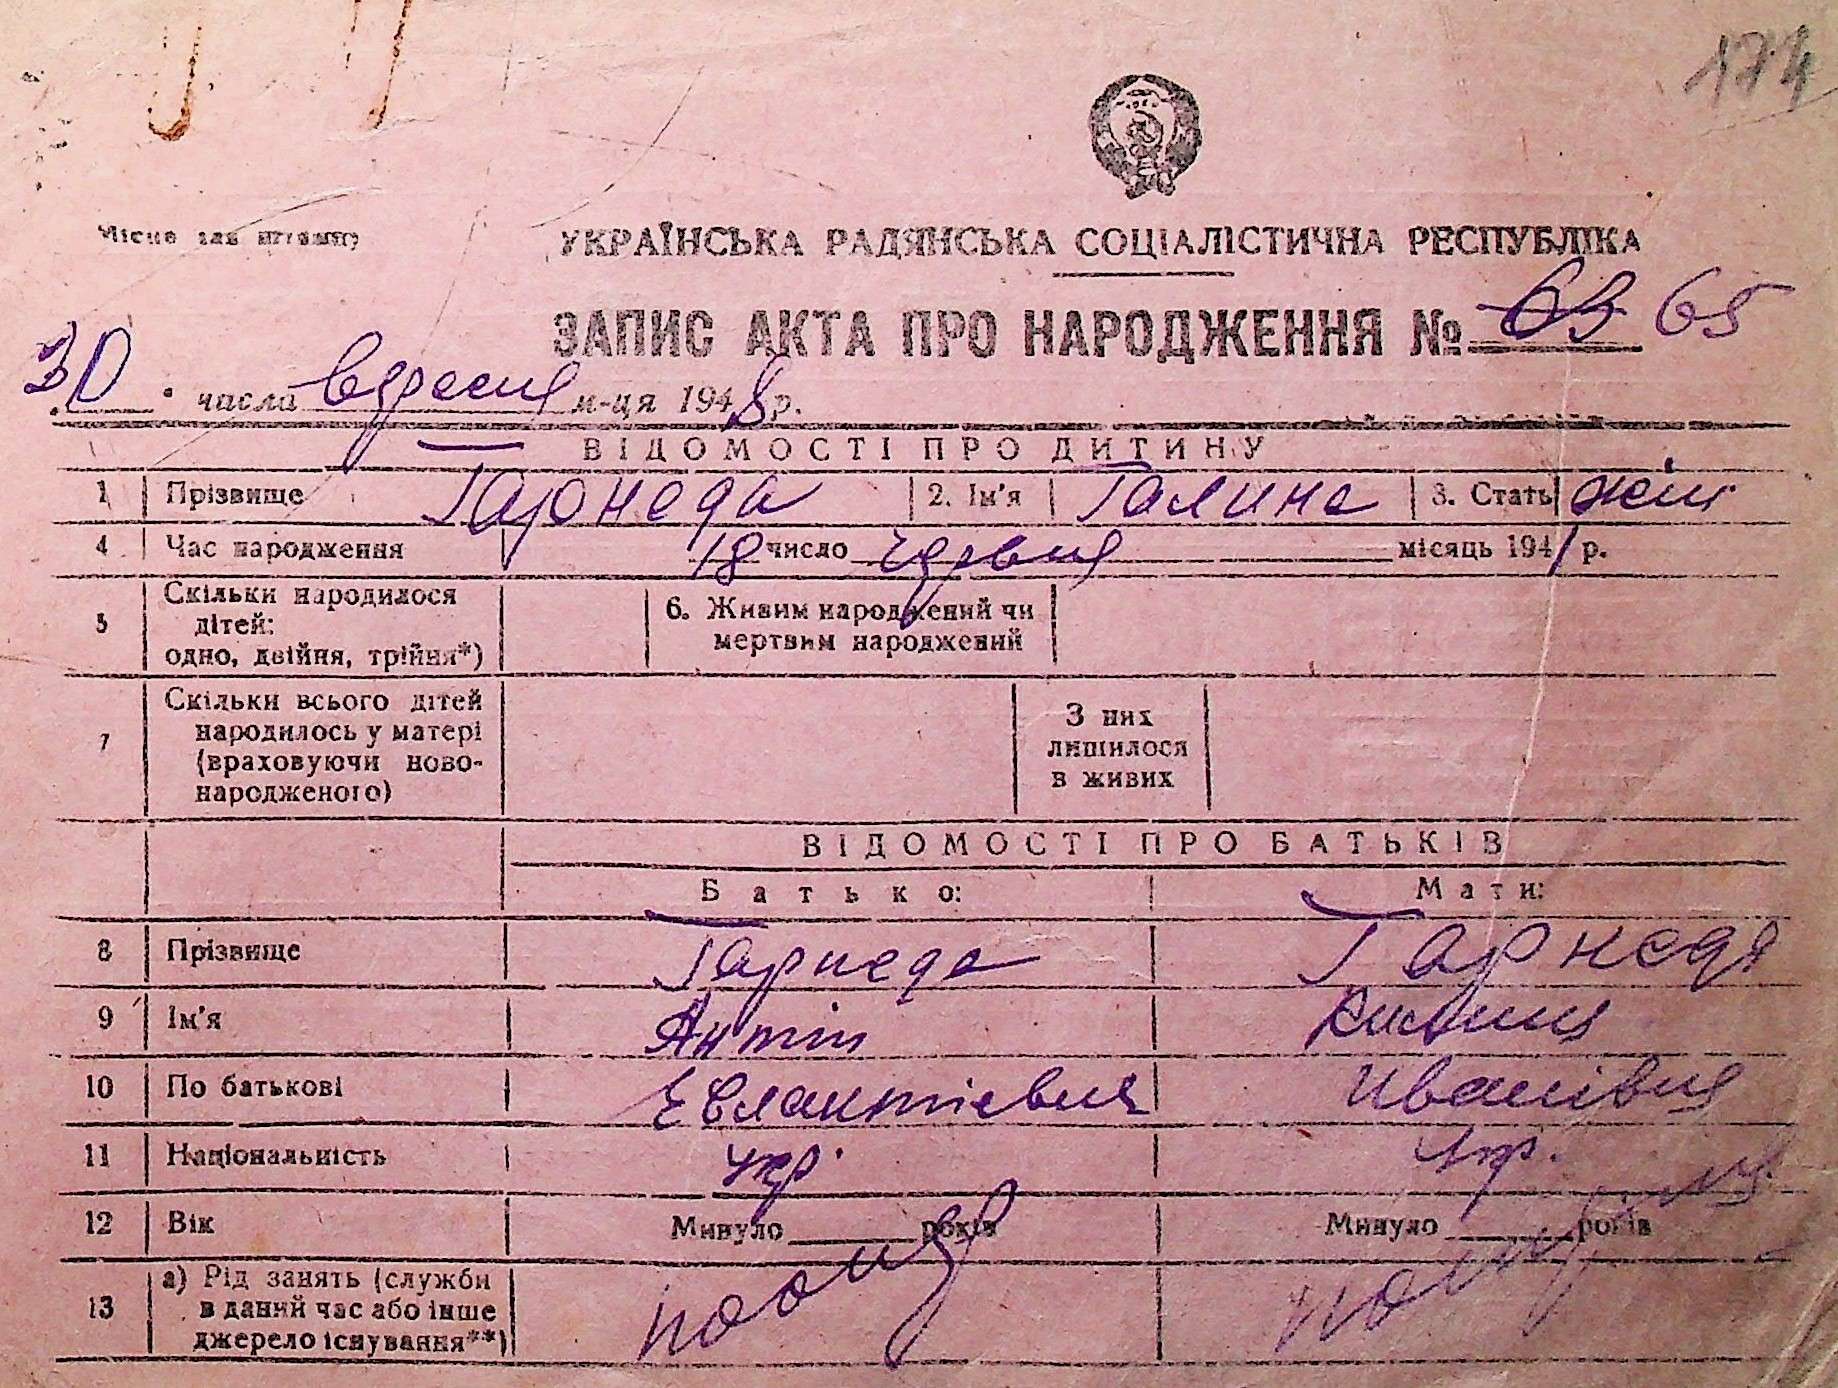 174
Місце для штампу
УКРАЇНСЬКА РАДЯНСЬКА СОЦІАЛІСТИЧНА РЕСПУБЛІКА
ЗАПИС АКТА ПРО НАРОДЖЕННЯ № 63 65
30 числа вересня м-ця 1948 р.
ВІДОМОСТІ ПРО ДИТИНУ
1 Прізвище Гарнеда 2. Ім'я Галина 3. Стать жін
4 Час народження 18 число червня місяць 1941 р.
5 Скільки народилося
дітей:
одно, двійня, трійня*)
6. Живим народжений чи
мертвим народжений
7 Скільки всього дітей
народилось у матері
(враховуючи ново-
народженого)
З них
лишилося
в живих
ВІДОМОСТІ ПРО БАТЬКІВ
Батько: Мати:
8 Прізвище Гарнеда Гарнеда
9 Ім'я Антіп
10 По батькові Евлантіевич Иванівна
11 Національність укр. укр.
12 Вік Минуло років Минуло років
13 а) Рід занять (служби
в даний час або інше
джерело існування**)